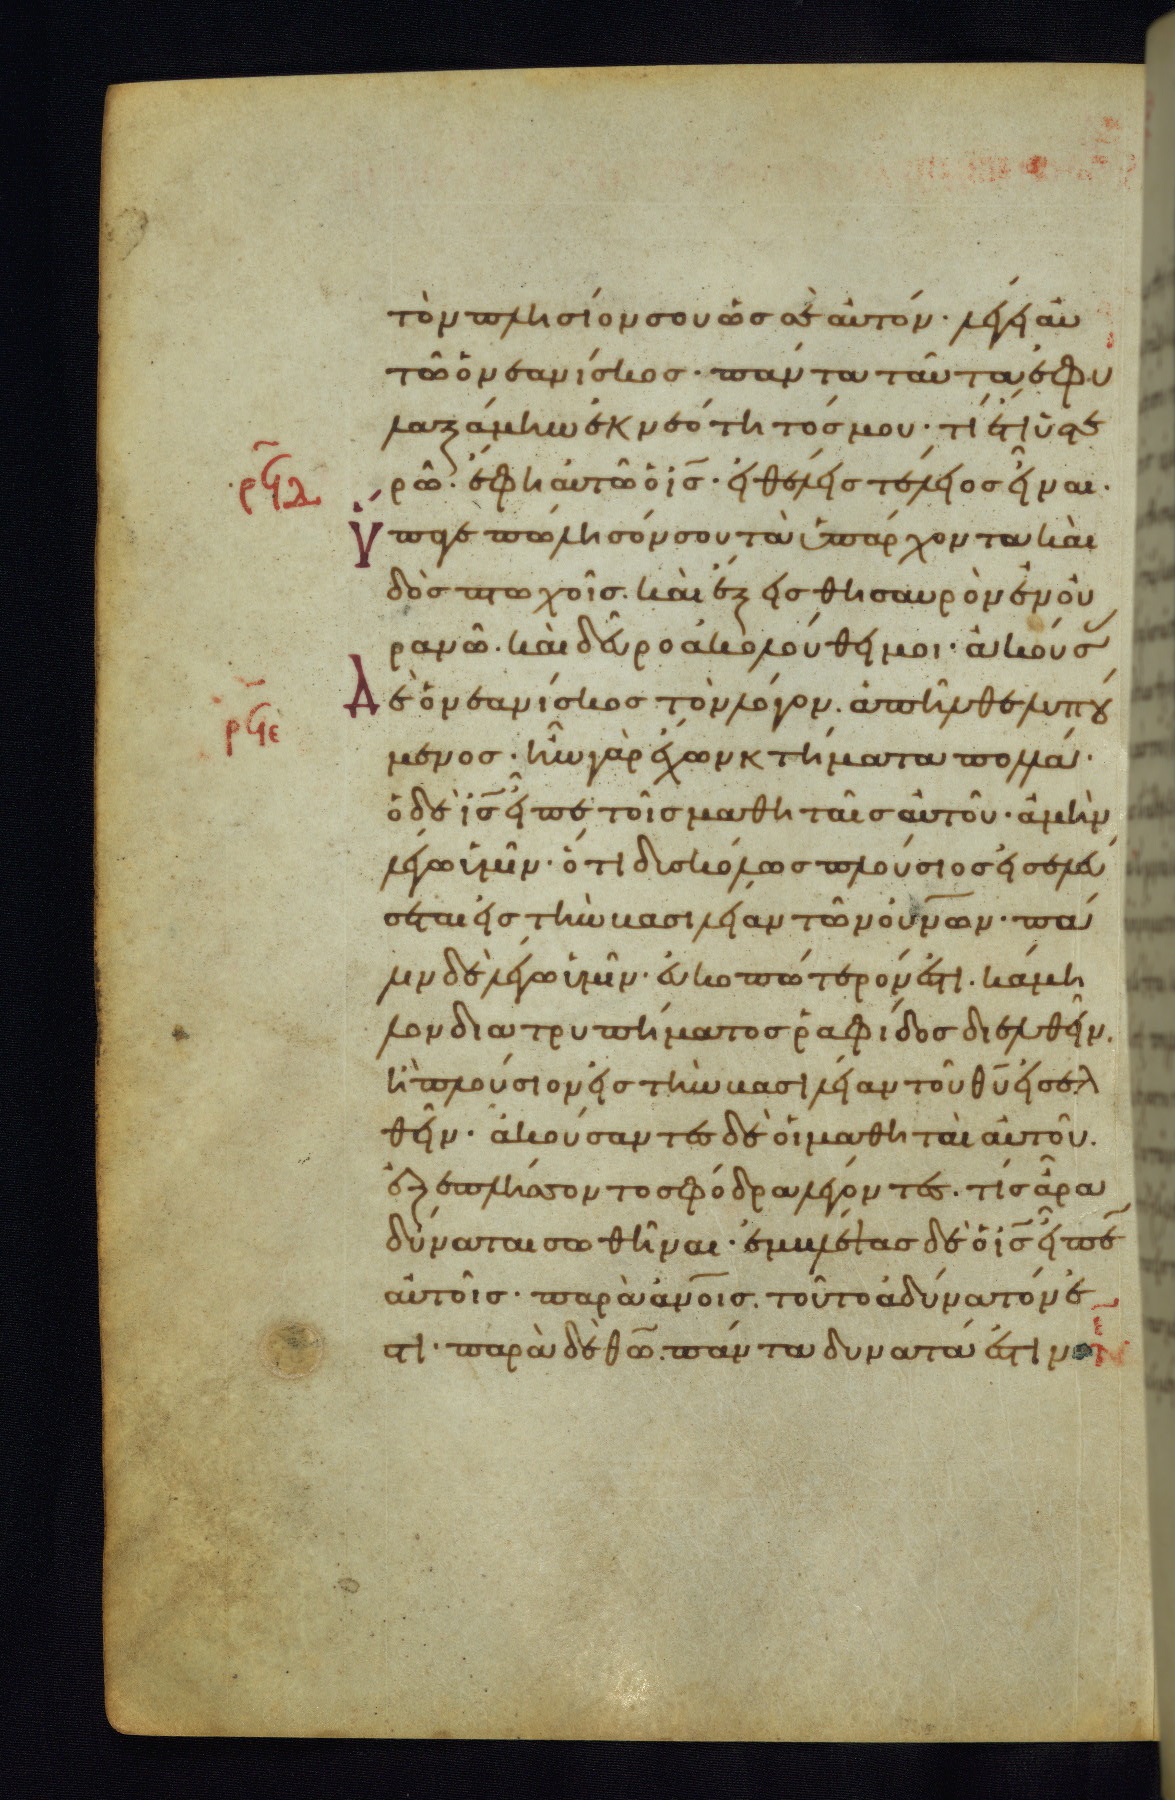 τὸν πλησίον σου ὡς σεαυτόν· λέγει αὐ
τῶ ὁ νεανίσκος· πάντα ταῦτα ἐφυ
λαξάμην ἐκ νεότητός μου· τί ἔτι ὑστε
ρῶ· ἔφη αὐτῶ ὁ ισ̅· εἰ θέλεις τέλειος εἶναι·
ρϟδ
ὕπαγε πώλησόν σου τὰ ὑπάρχοντα καὶ
δὸς πτωχοῖς. καὶ ἕξεις θησαυρὸν ἐν οὐ
ρανῶ. καὶ δεῦρο ἀκολούθει μοι· ἀκούσας
δὲ ὁ νεανίσκος τὸν λόγον. ἀπῆλθε λυπού
ρϟε
μενος· ἦν γὰρ ἔχων κτήματα πολλά·
ὁ δὲ ισ̅ εἶπε τοῖς μαθηταῖς αὐτοῦ· ἀμὴν
λέγω ὑμῖν· ὅτι δυσκόλως πλούσιος εἰσελεύ
σεται εἰς τὴν βασιλείαν τῶν οὐνων̅· πά
λιν δὲ λέγω ὑμῖν· εὐκοπώτερόν ἐστι. κάμη
λον διὰ τρυπήματος ῥαφίδος διελθεῖν.
ἢ πλούσιον εἰς τὴν βασιλείαν τοῦ θυ̅ εἰσελ
θεῖν· ἀκούσαντες δὲ οἱ μαθηταὶ αὐτοῦ.
ἐξεπλήσσοντο σφόδρα λέγοντες. τίς ἄρα
δύναται σωθῆναι· ἐμβλέψας δὲ ὁ ισ̅ εἶπεν
αὐτοῖς· παρὰ ανοις̅. τοῦτο ἀδύνατόν ἐ
στι· παρὰ δὲ θω̅. πάντα δυνατά ἐστιν